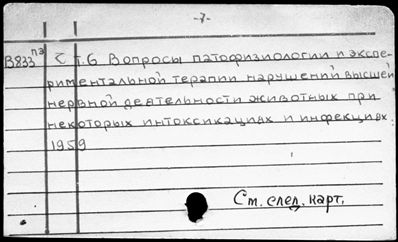 -7-
В833 пэ т.6 Вопросы патофизиологии и экспе-
риментальной терапии нарушений высшей
нервной деятельности животных при
некоторых интоксикациях и инфекциях.
1959
См. след. карт.